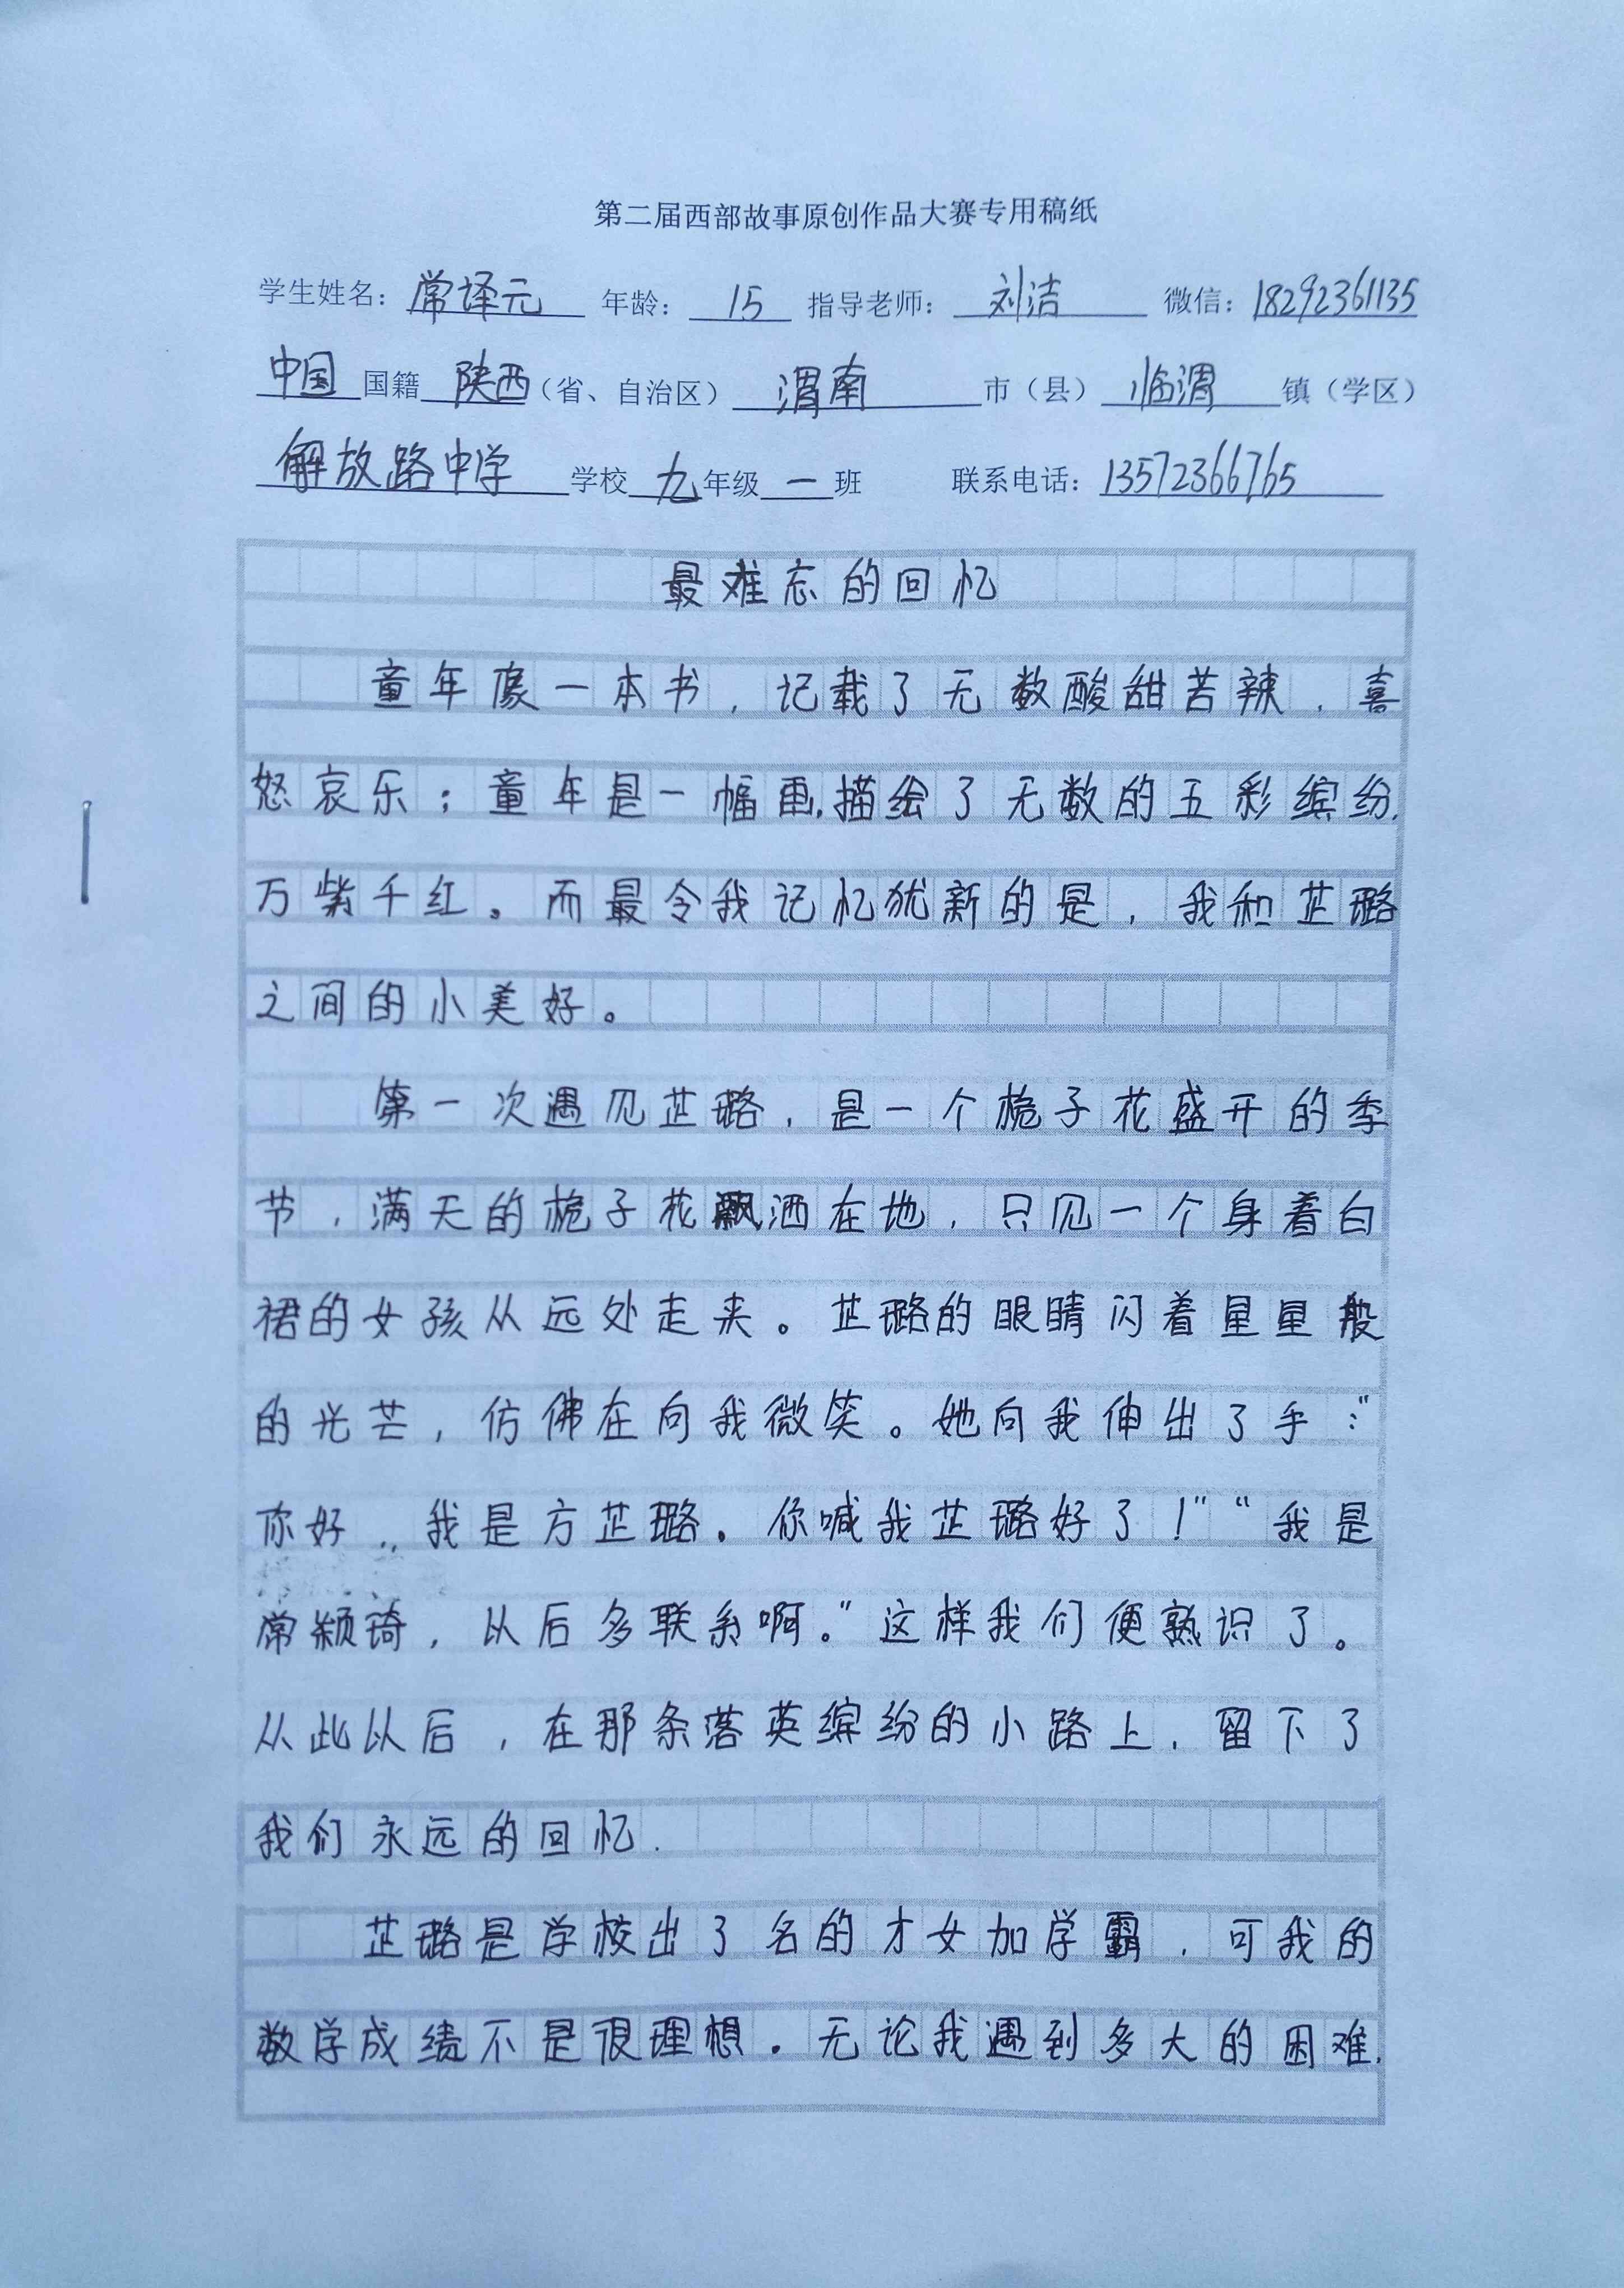 第二届西部故事原创作品大赛专用稿纸
学生姓名：常译元 年龄：15 指导老师：刘洁 微信：18292361135
中国国籍陕西（省、自治区）渭南市（县）临渭镇（学区）
解放路中学学校九年级一班 联系电话：13572366765
最难忘的回忆
童年像一本书，记载了无数酸甜苦辣，喜
怒哀乐；童年是一幅画，描绘了无数的五彩缤纷，
万紫千红。而最令我记忆犹新的是，我和芷璐
之间的小美好。
第一次遇见芷璐，是一个栀子花盛开的季
节，满天的栀子花飘洒在地，只见一个身着白
裙的女孩从远处走来。芷璐的眼睛闪着星星般
的光芒，仿佛在向我微笑。她向我伸出了手：“
你好，，我是方芷璐。你喊我芷璐好了！”“我是
常颖琦，从后多联系啊。”这样我们便熟识了。
从此以后，在那条落英缤纷的小路上，留下了
我们永远的回忆.
芷璐是学校出了名的才女加学霸，可我的
数学成绩不是很理想。无论我遇到多大的困难，